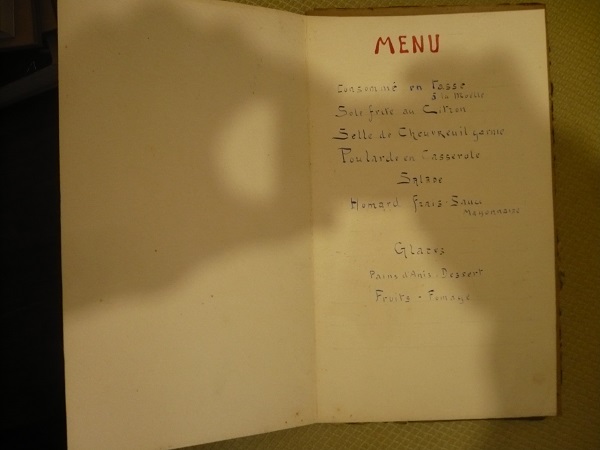 MENU
Consommé en Tasse
à la Moelle
Sole frite au Citron
Selle de Cheuvreuil garnie
Poularde en Casserole
Salade
Homard frais - Sauce
Mayonnaise
Glaces
Pains d'Anis - Dessert
Fruits - Fomage